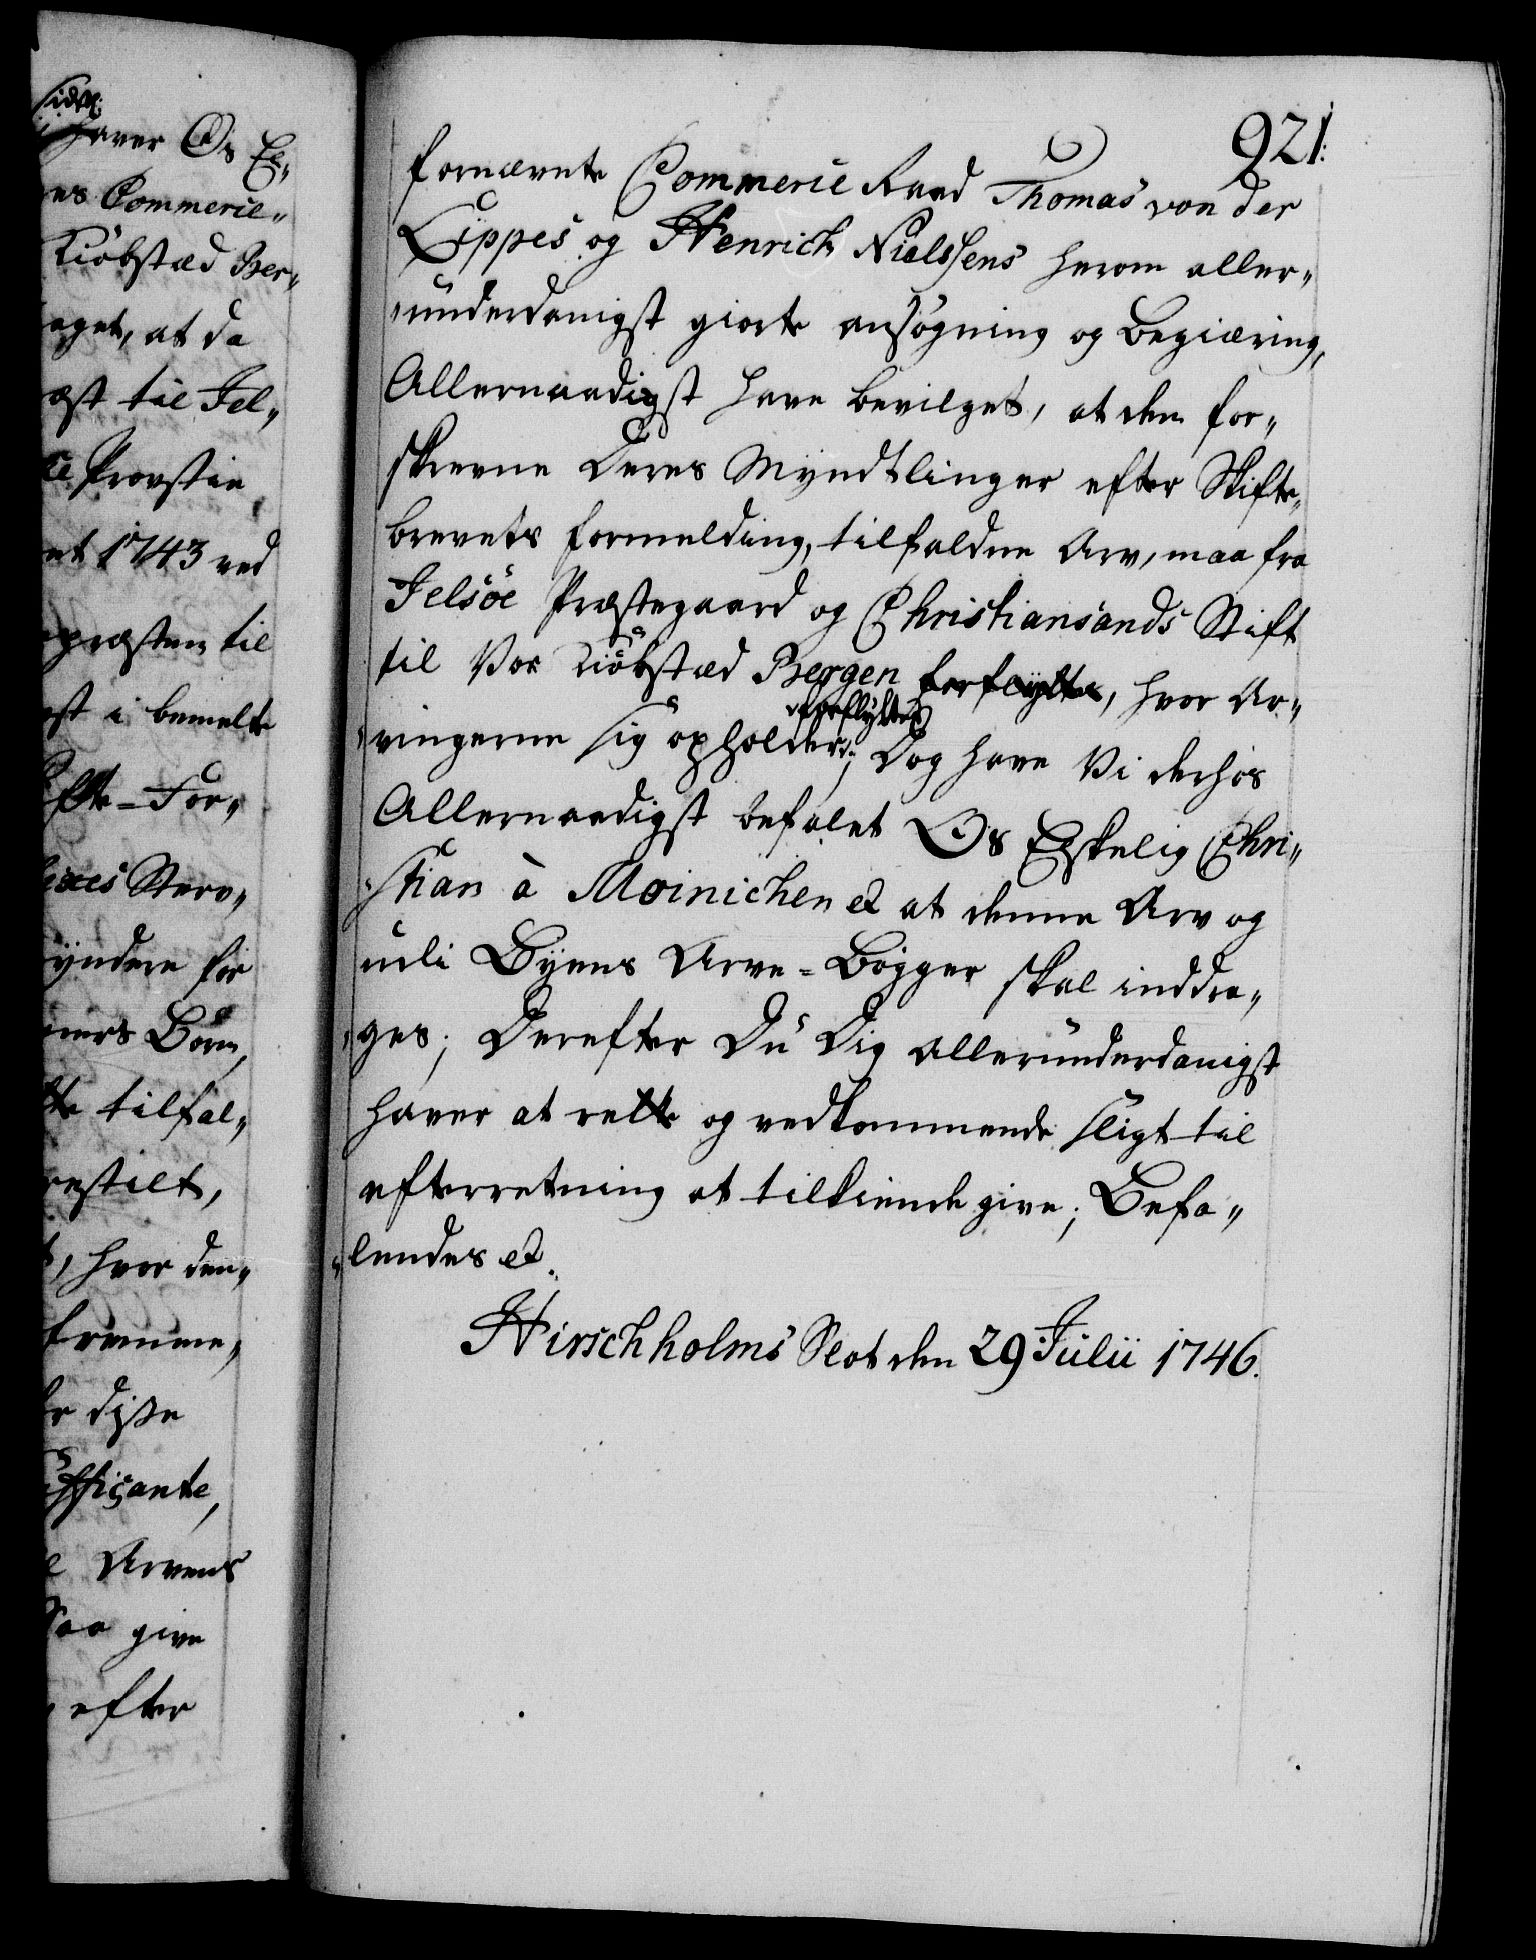 sidst:
haver Os El„
es Commerie„
Kiöbstæd Ber„
aget, at da
st til Jel„
Provstie
et 1743 ved
præsten til
st i bemelte
fte-For„
Sterv„
yndere for
ners Börn,
te tilfal„
estilt,
, hvor den„
fremme„
disse
ufficante,
Arvens
Saa give
efter
921.
fornævnte Commerie Raad Thomas von der
Lippes og Henrich Nielssens herom aller„
„underdanigst giorte ansögning og begiæring,
Allernaadigst have bevilget, at den for„
skrevne Deres Myndtlinger efter Skifte„
brevets formelding, tilfaldne Arv, maa fra
Jelsöe Præstegaard og Christiansands Stift
til Vor Kiöbstæd Bergen forflyttes, hvor Ar„
forflyttes
„vingerne sig opholder; Dog have Vi derhos
Allernaadigst befalet Os Elskelig Chri„
„stian à Moinichen et at denne Arv og
udi Byens Arve=Bögger skal inddra„
„ges; Derefter Du Dig allerunderdanigst
haver at rette og vedkommende sligt til
efterretning at tilkiende give; Befa„
„lendes et.
Hirschholms Slot den 29 Julii 1746.